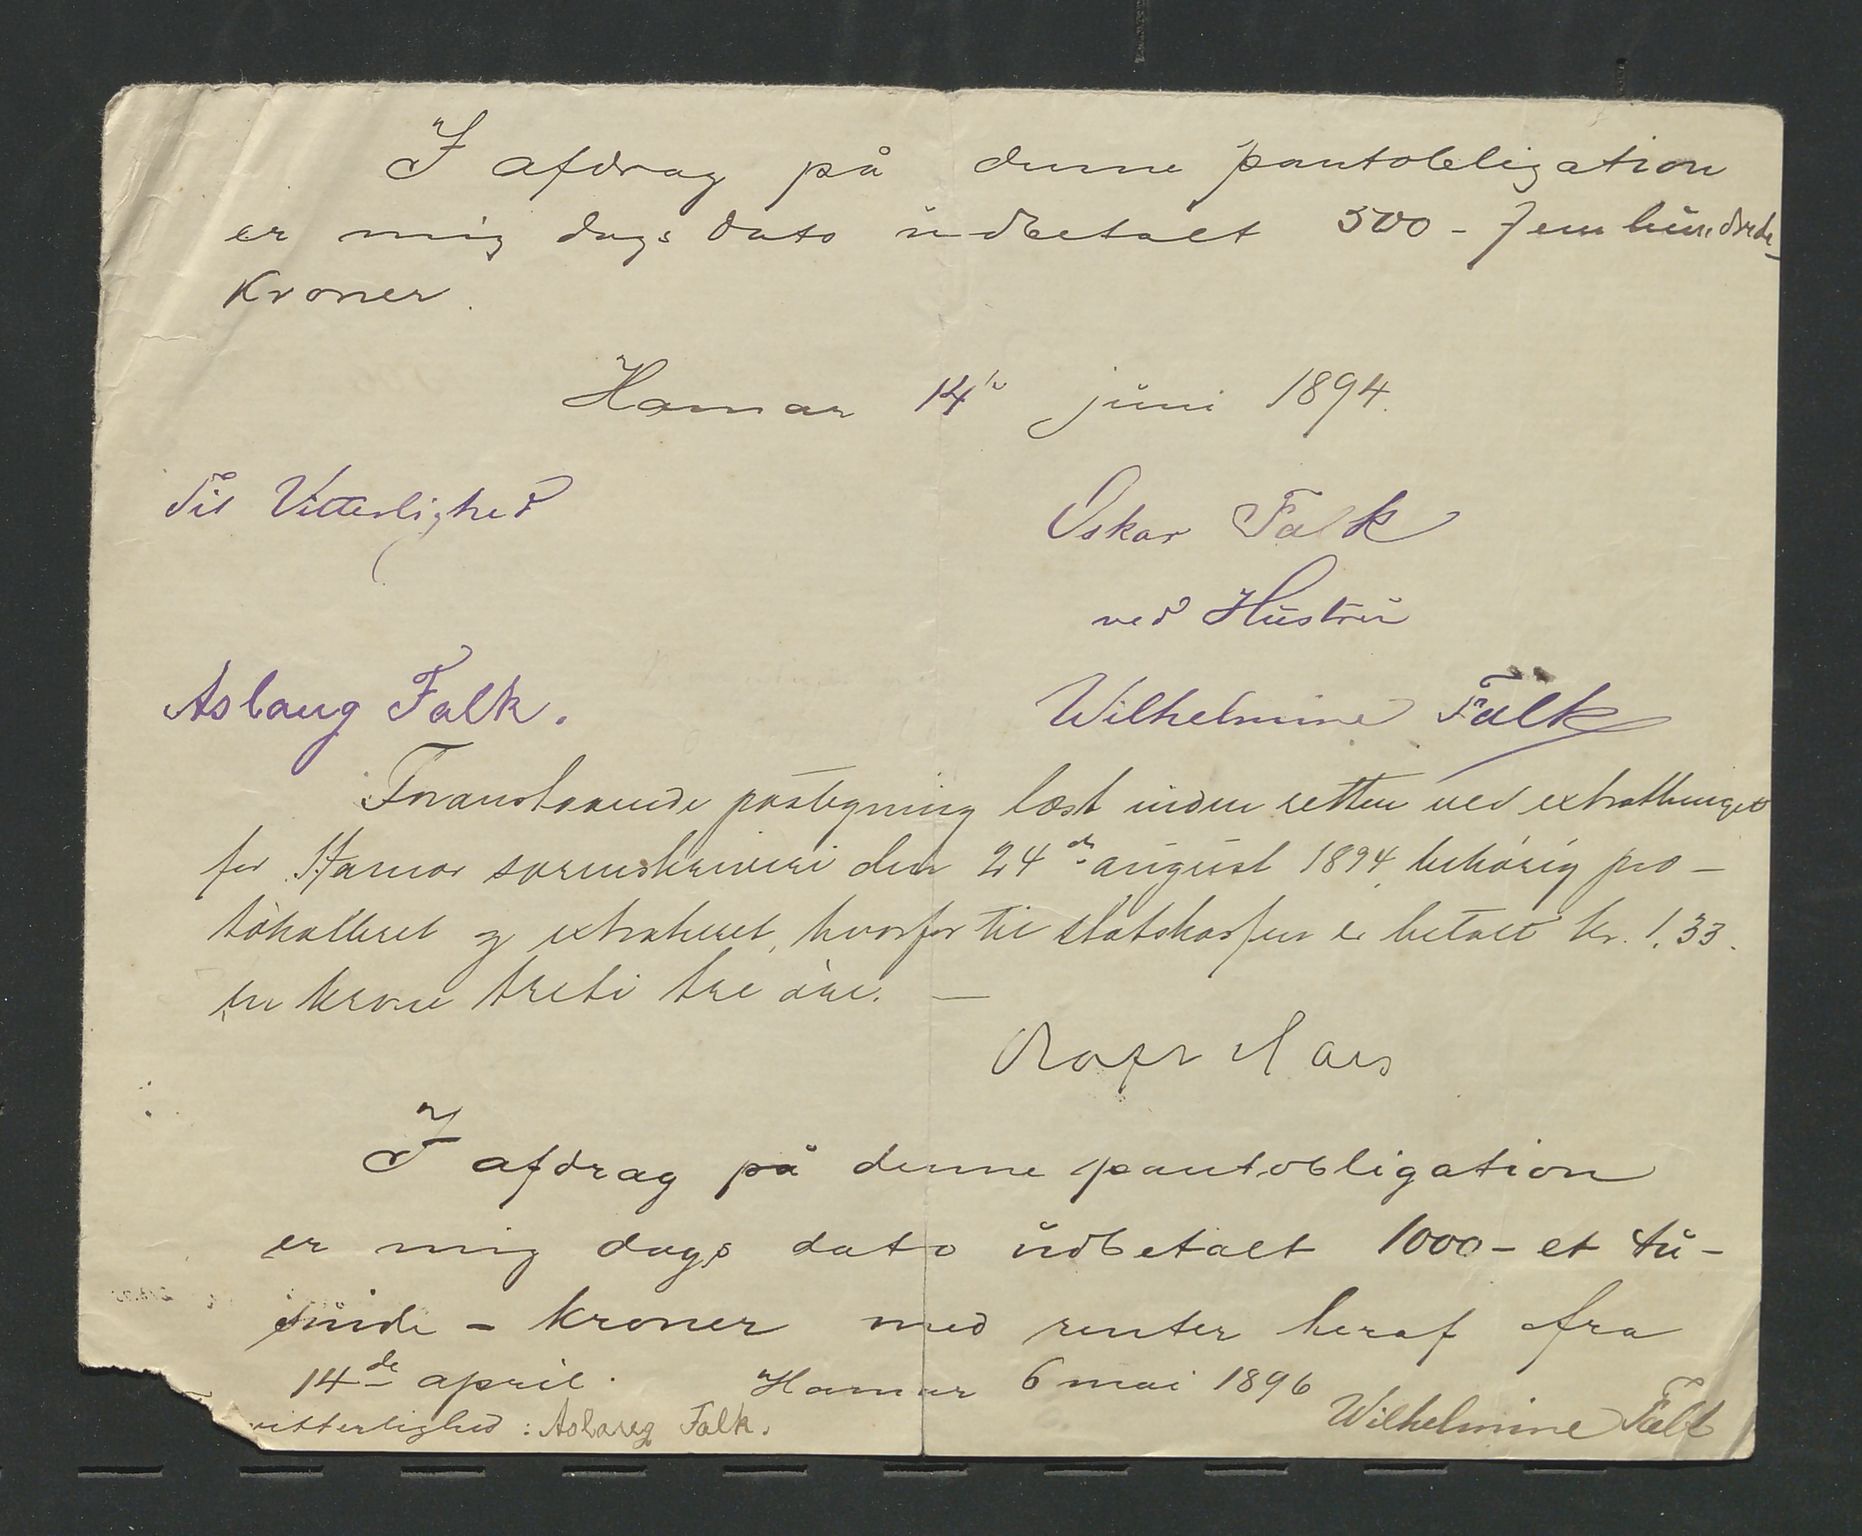 I afdrag på denne pantobligation
er mig dags dato udbetalt 500 - femhundrede
Kroner.
Hamar 14de juni 1894.
Til Vitterlighed
Oskar Falk
ved Hustru
Aslaug Falk.
Wilhelmine Falk
Foranstaaende paategning læst inden retten ved extrathinget
for Hamar sorenskriveri den 24de august 1894, behørig pro-
tokolleret og extraheret, hvorfor til statskassen er betalt kr. 1.33.
en krone treti tre øre. —
I afdrag på denne pantobligation
er mig dags dato udbetalt 1000 - et tu-
sinde - kroner med renter heraf fra
14de april. Hamar 6 mai 1896
vitterlighed: Aslaug Falk.
Wilhelmine Falk